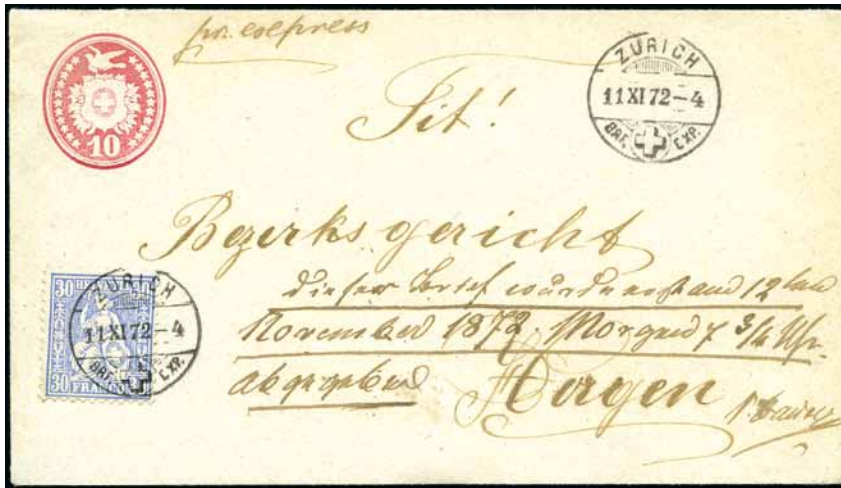 pr. express
10
ZURICH
11 XI 72-4
BRF. EXP.
Tit!
Bezirksgericht
dieser Brief wurde erst am 12ten
November 1872. Morgens 7 3/4 Uhr.
abgegeben
Horgen
30 30
ZURICH
11 XI 72-4
BRF. EXP.
30 FRANCO